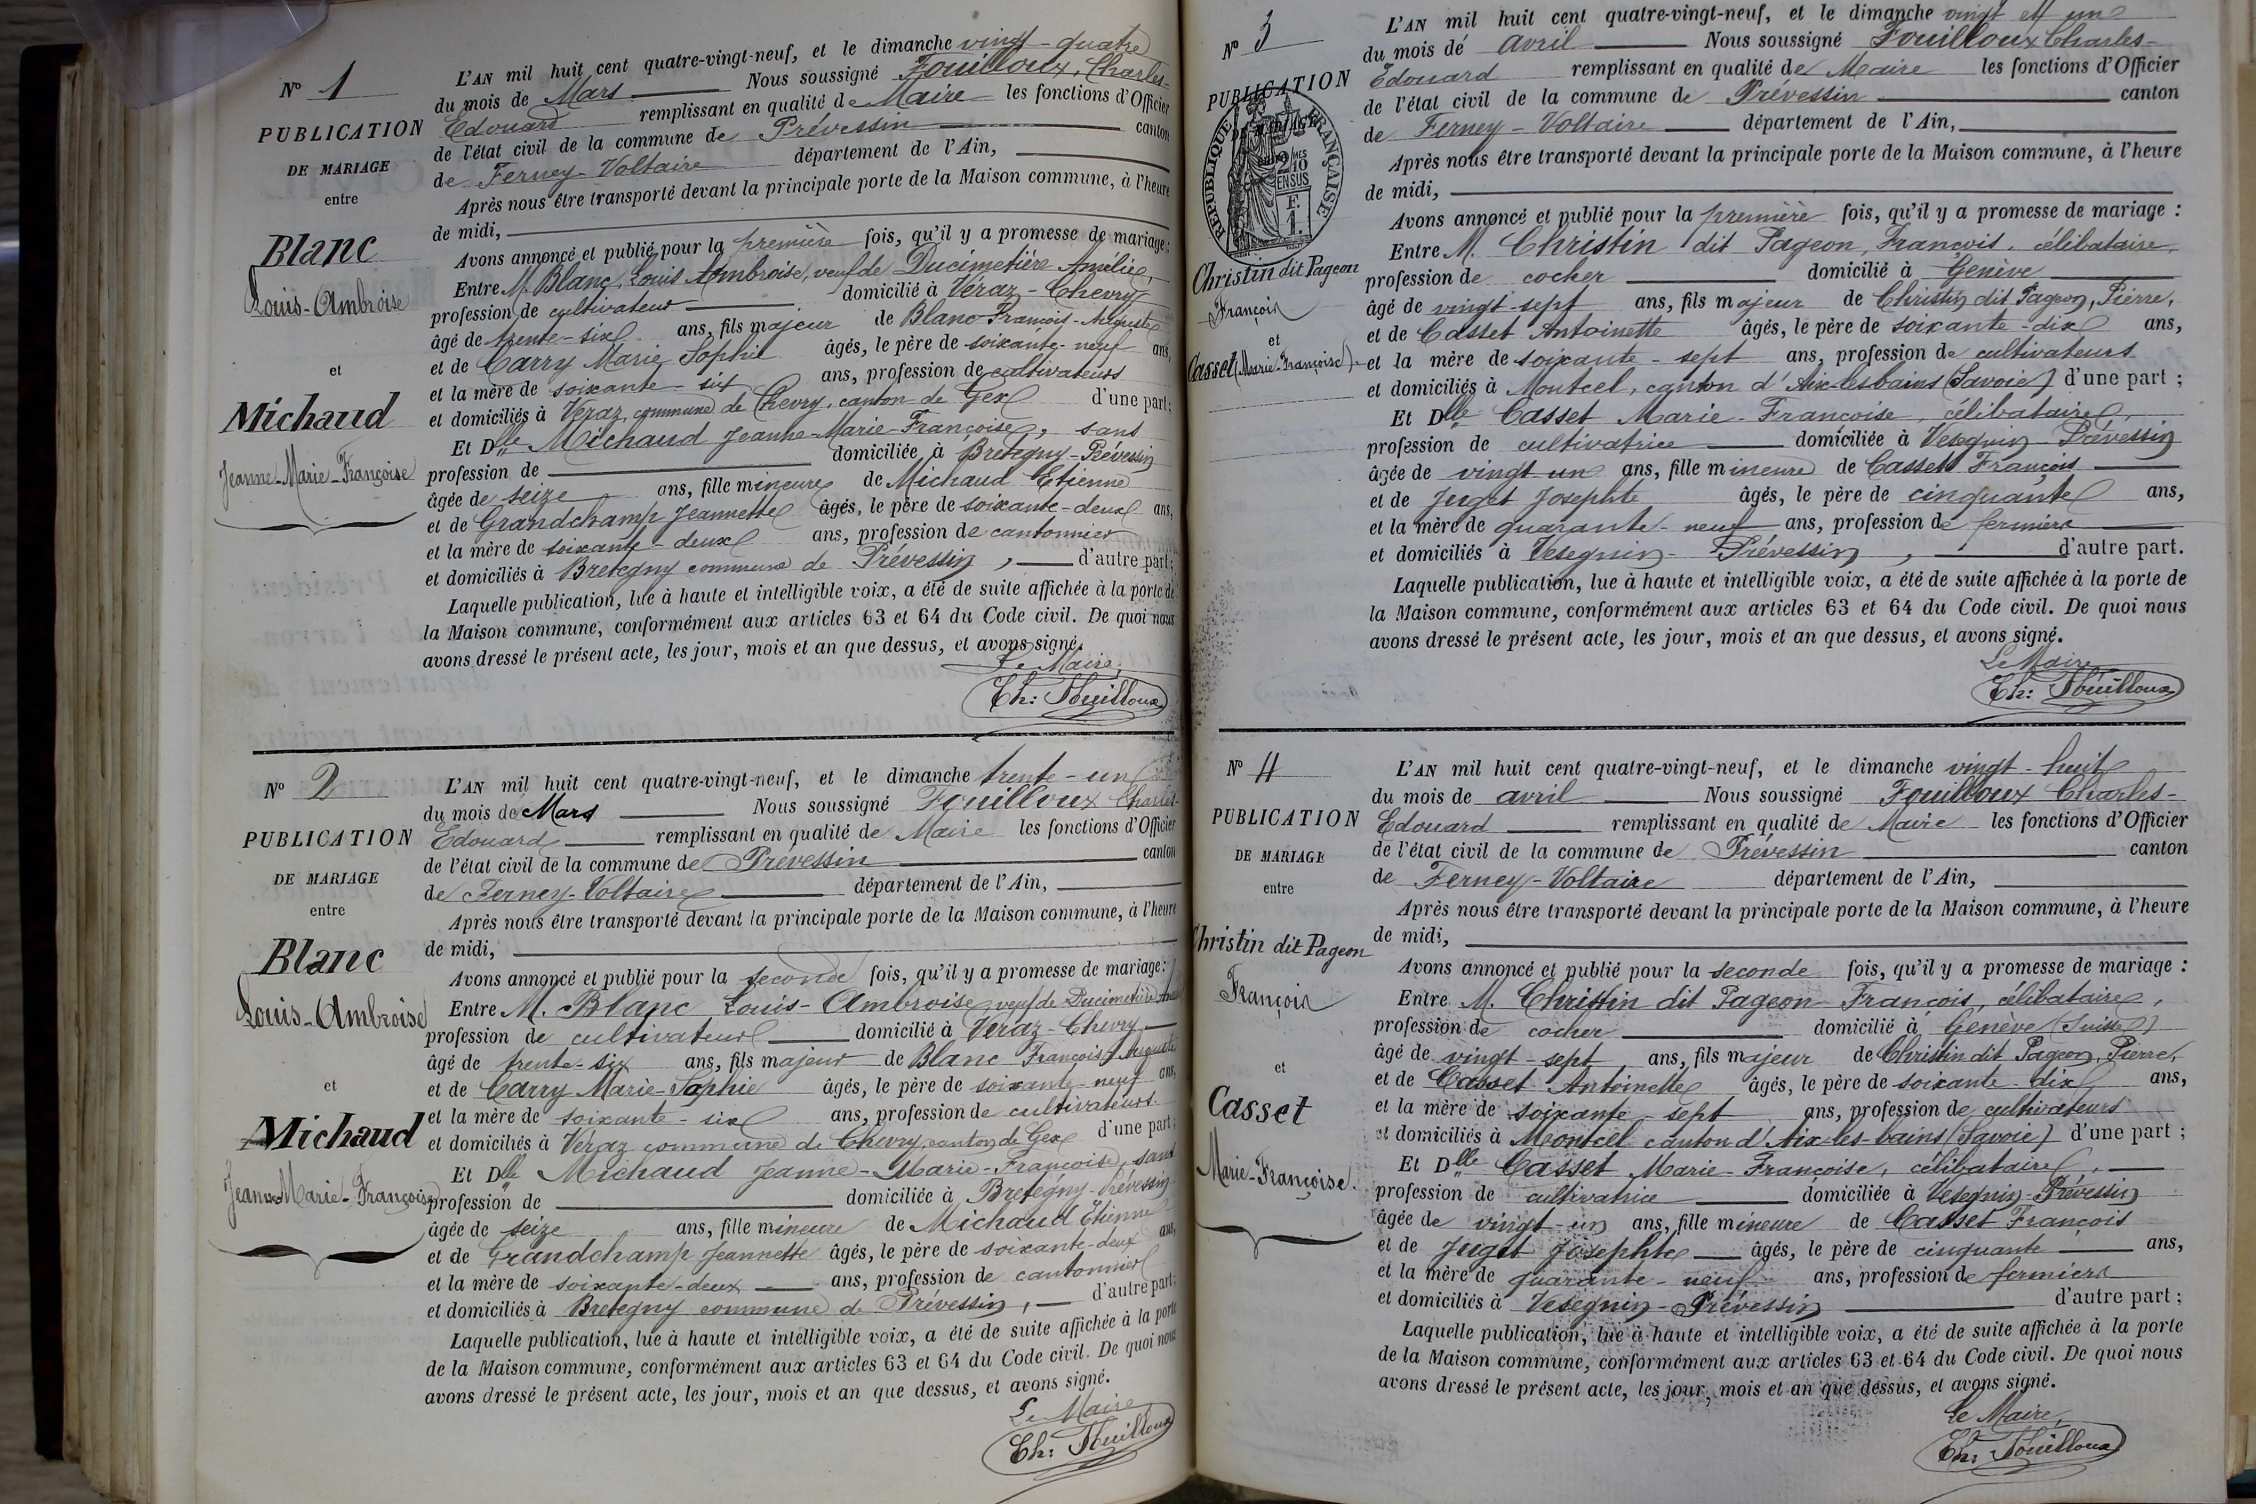 N° 1
PUBLICATION
DE MARIAGE
entre
Blanc
Louis-Ambroise
et
Michaud
Jeanne-Marie-Françoise
L'AN mil huit cent quatre-vingt-neuf, et le dimanche vingt-quatre
du mois de Mars Nous soussigné Fouilloux, Charles-
Edouard remplissant en qualité de Maire les fonctions d'Officier
de l'état civil de la commune de Prévessin canton
de Ferney-Voltaire département de l'Ain,
Après nous être transporté devant la principale porte de la Maison commune, à l'heure
de midi,
Avons annoncé et publié pour la première fois, qu'il y a promesse de mariage :
Entre M. Blanc, Louis Ambroise, veuf de Ducimetière Amélie,
profession de cultivateur domicilié à Véraz-Chevry
âgé de trente-six ans, fils majeur de Blanc François-Auguste
et de Carry Marie Sophie âgés, le père de soixante-neuf ans,
et la mère de soixante-six ans, profession de cultivateurs
et domiciliés à Véraz, commune de Chevry, canton de Gex d'une part ;
Et Dlle Michaud Jeanne-Marie-Françoise, sans
profession de domiciliée à Bretegny-Prévessin
âgée de seize ans, fille mineure de Michaud Etienne
et de Grandchamp Jeannette âgés, le père de soixante-deux ans,
et la mère de soixante-deux ans, profession de cantonnier
et domiciliés à Bretegny commune de Prévessin, d'autre part ;
Laquelle publication, lue à haute et intelligible voix, a été de suite affichée à la porte de
la Maison commune, conformément aux articles 63 et 64 du Code civil. De quoi nous
avons dressé le présent acte, les jour, mois et an que dessus, et avons signé.
Le Maire,
Ch: Fouilloux
N° 2
PUBLICATION
DE MARIAGE
entre
Blanc
Louis-Ambroise
et
Michaud
Jeanne-Marie-Françoise
L'AN mil huit cent quatre-vingt-neuf, et le dimanche trente-un
du mois de Mars Nous soussigné Fouilloux Charles-
Edouard remplissant en qualité de Maire les fonctions d'Officier
de l'état civil de la commune de Prévessin canton
de Ferney-Voltaire département de l'Ain,
Après nous être transporté devant la principale porte de la Maison commune, à l'heure
de midi,
Avons annoncé et publié pour la seconde fois, qu'il y a promesse de mariage :
Entre M. Blanc Louis-Ambroise, veuf de Ducimetière
profession de cultivateur domicilié à Véraz-Chevry
âgé de trente-six ans, fils majeur de Blanc François Auguste
et de Carry Marie-Sophie âgés, le père de soixante-neuf ans,
et la mère de soixante-six ans, profession de cultivateurs
et domiciliés à Véraz commune de Chevry, canton de Gex d'une part ;
Et Dlle Michaud Jeanne-Marie-Françoise, sans
profession de domiciliée à Bretegny-Prévessin
âgée de seize ans, fille mineure de Michaud Étienne
et de Grandchamp Jeannette âgés, le père de soixante-deux ans,
et la mère de soixante-deux ans, profession de cantonnier
et domiciliés à Bretegny commune de Prévessin, d'autre part ;
Laquelle publication, lue à haute et intelligible voix, a été de suite affichée à la porte
de la Maison commune, conformément aux articles 63 et 64 du Code civil. De quoi nous
avons dressé le présent acte, les jour, mois et an que dessus, et avons signé.
Le Maire
Ch: Fouilloux
N° 3
PUBLICATION
DE MARIAGE
RÉPUBLIQUE FRANÇAISE
2/10MES
EN SUS
F.
1.
Christin dit Pageon
François
et
Casset (Marie-Françoise)
L'AN mil huit cent quatre-vingt-neuf, et le dimanche vingt et un
du mois de avril Nous soussigné Fouilloux Charles-
Edouard remplissant en qualité de Maire les fonctions d'Officier
de l'état civil de la commune de Prévessin canton
de Ferney-Voltaire département de l'Ain,
Après nous être transporté devant la principale porte de la Maison commune, à l'heure
de midi,
Avons annoncé et publié pour la première fois, qu'il y a promesse de mariage :
Entre M. Christin dit Pageon, François, célibataire,
profession de cocher domicilié à Genève
âgé de vingt-sept ans, fils majeur de Christin dit Pageon, Pierre,
et de Casset Antoinette âgés, le père de soixante-dix ans,
et la mère de soixante-sept ans, profession de cultivateurs
et domiciliés à Montcel, canton d'Aix-lesbains (Savoie) d'une part ;
Et Dlle Casset Marie-Françoise, célibataire,
profession de cultivatrice domiciliée à Vesegnin-Prévessin
âgée de vingt-un ans, fille mineure de Casset François
et de Juget Josephte âgés, le père de cinquante ans,
et la mère de quarante-neuf ans, profession de fermiers
et domiciliés à Vesegnin-Prévessin, d'autre part.
Laquelle publication, lue à haute et intelligible voix, a été de suite affichée à la porte de
la Maison commune, conformément aux articles 63 et 64 du Code civil. De quoi nous
avons dressé le présent acte, les jour, mois et an que dessus, et avons signé.
Le Maire
Ch: Fouilloux
N° 4
PUBLICATION
DE MARIAGE
entre
Christin dit Pageon
François
et
Casset
Marie-Françoise.
L'AN mil huit cent quatre-vingt-neuf, et le dimanche vingt-huit
du mois de avril Nous soussigné Fouilloux Charles-
Edouard remplissant en qualité de Maire les fonctions d'Officier
de l'état civil de la commune de Prévessin canton
de Ferney-Voltaire département de l'Ain,
Après nous être transporté devant la principale porte de la Maison commune, à l'heure
de midi,
Avons annoncé et publié pour la seconde fois, qu'il y a promesse de mariage :
Entre M. Christin dit Pageon François, célibataire,
profession de cocher domicilié à Genève (Suisse)
âgé de vingt-sept ans, fils majeur de Christin dit Pageon, Pierre,
et de Casset Antoinette âgés, le père de soixante-dix ans,
et la mère de soixante-sept ans, profession de cultivateurs
et domiciliés à Montcel canton d'Aix-les-bains (Savoie) d'une part ;
Et Dlle Casset Marie-Françoise, célibataire,
profession de cultivatrice domiciliée à Vesegnin-Prévessin
âgée de vingt-un ans, fille mineure de Casset François
et de Juget Josephte âgés, le père de cinquante ans,
et la mère de quarante-neuf ans, profession de fermiers
et domiciliés à Vesegnin-Prévessin d'autre part ;
Laquelle publication, lue à haute et intelligible voix, a été de suite affichée à la porte
de la Maison commune, conformément aux articles 63 et 64 du Code civil. De quoi nous
avons dressé le présent acte, les jour, mois et an que dessus, et avons signé.
Le Maire,
Ch: Fouilloux